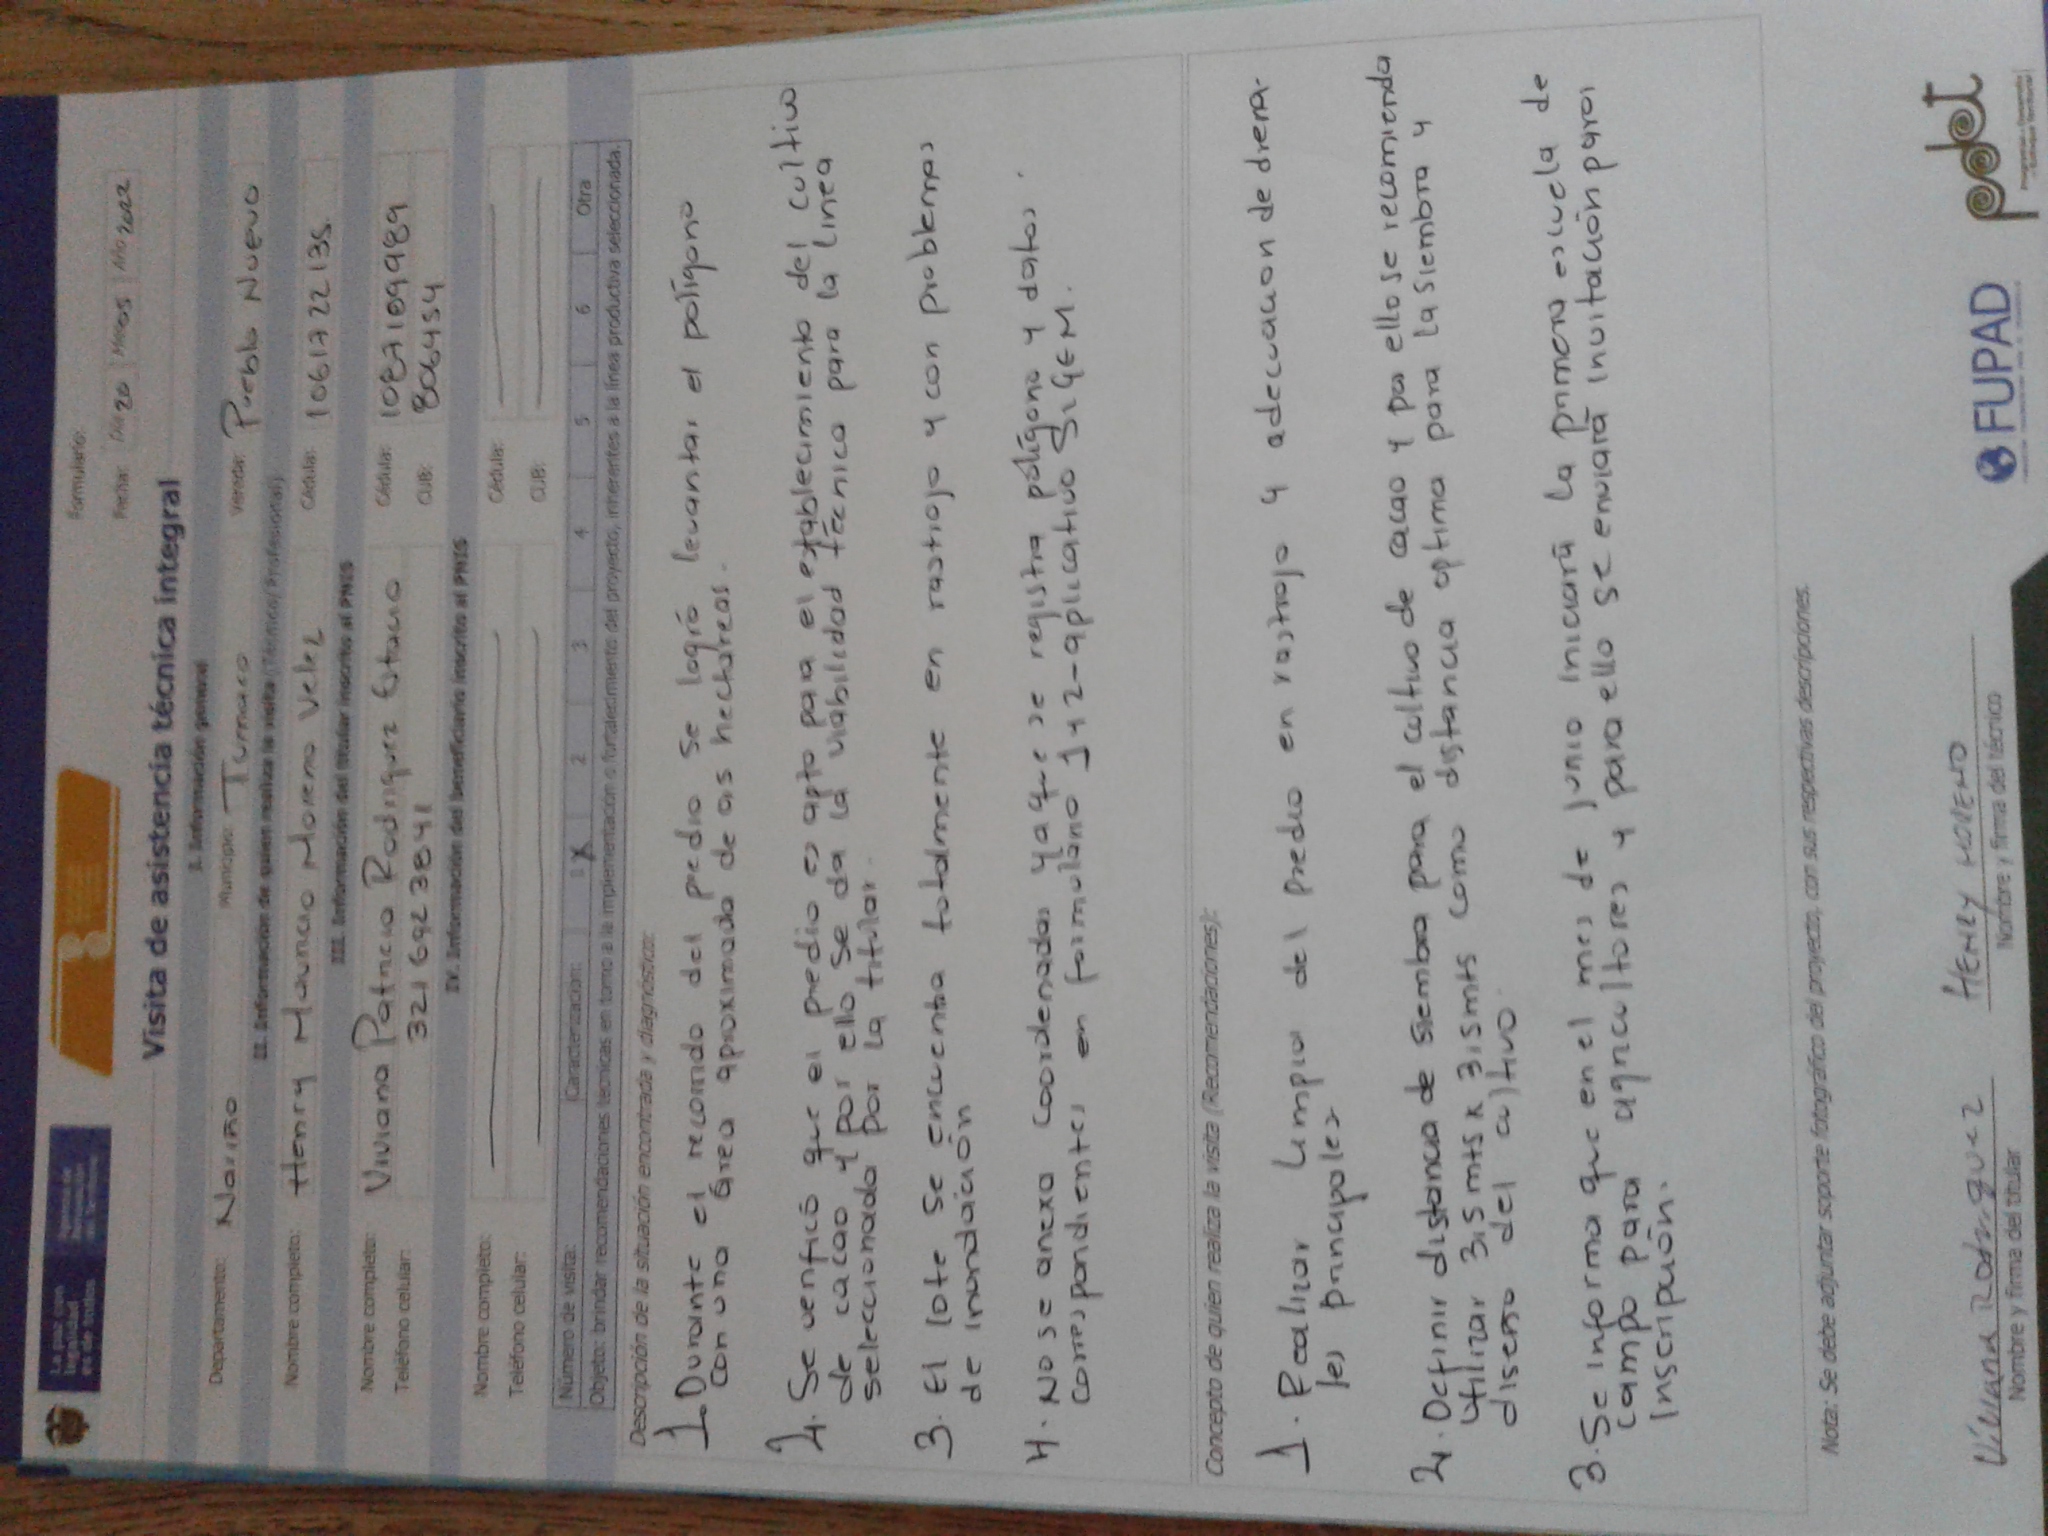 La paz con
legalidad
es de todos
Formulario:
Fecha: Día 20 Mes 05 Año 2022
Visita de asistencia técnica integral
I. Información general
Departamento: Nariño Municipio: Tumaco Vereda: Pueblo Nuevo
II. Información de quien realiza la visita (Técnico/Profesional)
Nombre completo: Henry Mauricio Moreno Velez Cédula: 1061722135
III. Información del titular inscritos al PNIS
Nombre completo: Viviana Patricia Rodriguez Estacio Cédula: 1087109989
Teléfono celular: 3216923841 CUB: 806454
IV. Información del beneficiario inscritos al PNIS
Nombre completo: Cédula:
Teléfono celular: CUB:
Número de visita: Caracterización: 1 X 2 3 4 5 6 Otra
Objeto: brindar recomendaciones técnicas en torno a la implementación o fortalecimiento del proyecto, inherentes a la línea productiva seleccionada.
Descripción de la situación encontrada y diagnóstico:
1. Durante el recorrido del predio se logró levantar el polígono
con una área aproximada de as hectareas.
2. Se verificó que el predio es apto para el establecimiento del cultivo
de cacao y por ello se da la viabilidad técnica para la linea
seleccionada por la titular.
3. El lote se encuentra totalmente en rastrojo y con problemas
de inundación
4. No se anexa coordenadas ya que se registra polígono y datos
correspondientes en formulario 1 y 2 - aplicativo SIGEM.
Concepto de quien realiza la visita (Recomendaciones):
1. Realizar limpia del predio en rastrojo y adecuacion de drena-
jes principales
2. Definir distancia de siembra para el cultivo de cacao y por ello se recomienda
utilizar 3,5 mts x 3,5 mts como distancia optima para la siembra y
diseño del cultivo.
3. Se informa que en el mes de junio iniciará la primera escuela de
campo para agricultores y para ello se enviará invitación para
inscripción.
Nota: Se debe adjuntar soporte fotográfico del proyecto, con sus respectivas descripciones.
Viviana Rodriguez HENRY MORENO
Nombre y firma del titular Nombre y firma del técnico
FUPAD pdet